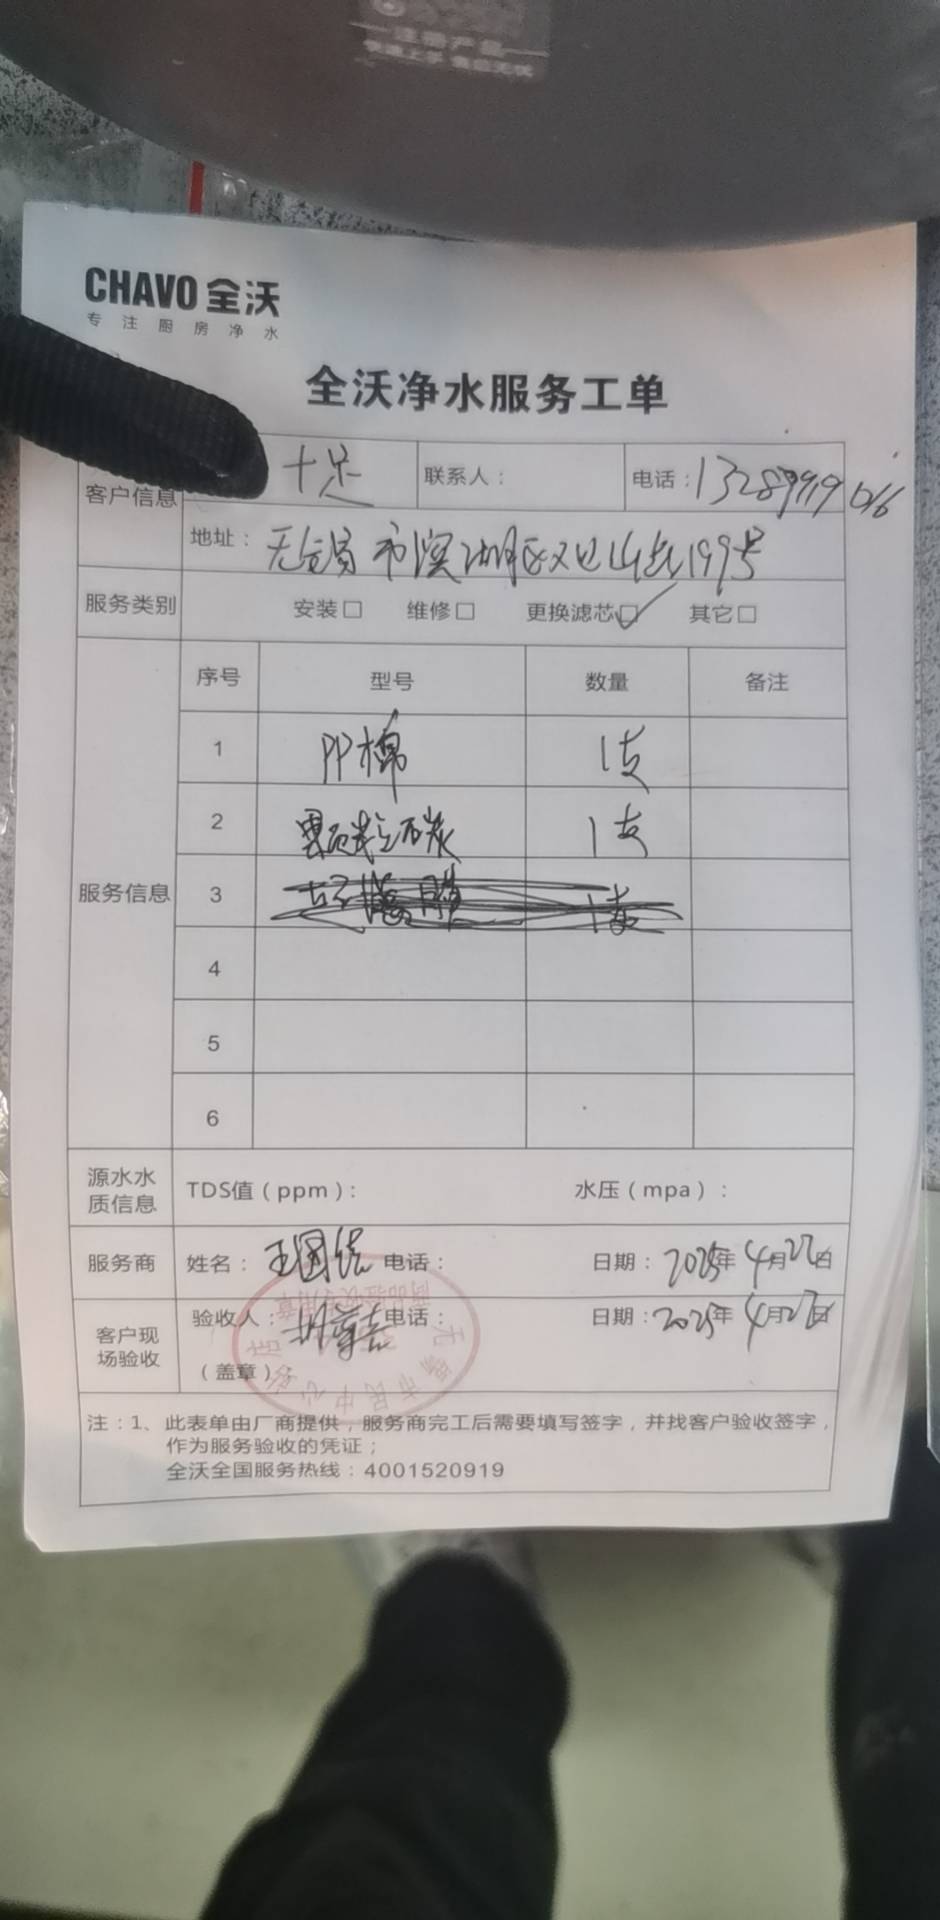 注册产品
CHAVO 全沃
专注厨房净水
全沃净水服务工单
客户信息 十足 联系人： 电话：
地址：无锡市滨湖区观山路199号
服务类别 安装□ 维修□ 更换滤芯□✓ 其它□
服务信息
序号 型号 数量 备注
1 PP棉 1支
2 颗粒碳 1支
3
4
5
6
源水水质信息 TDS值（ppm）： 水压（mpa）：
服务商 姓名： 电话： 日期：2025年4月27日
客户现场验收 验收人： 电话： 日期：2025年4月27日
（盖章）
注：1、此表单由厂商提供，服务商完工后需要填写签字，并找客户验收签字，
作为服务验收的凭证；
全沃全国服务热线：4001520919